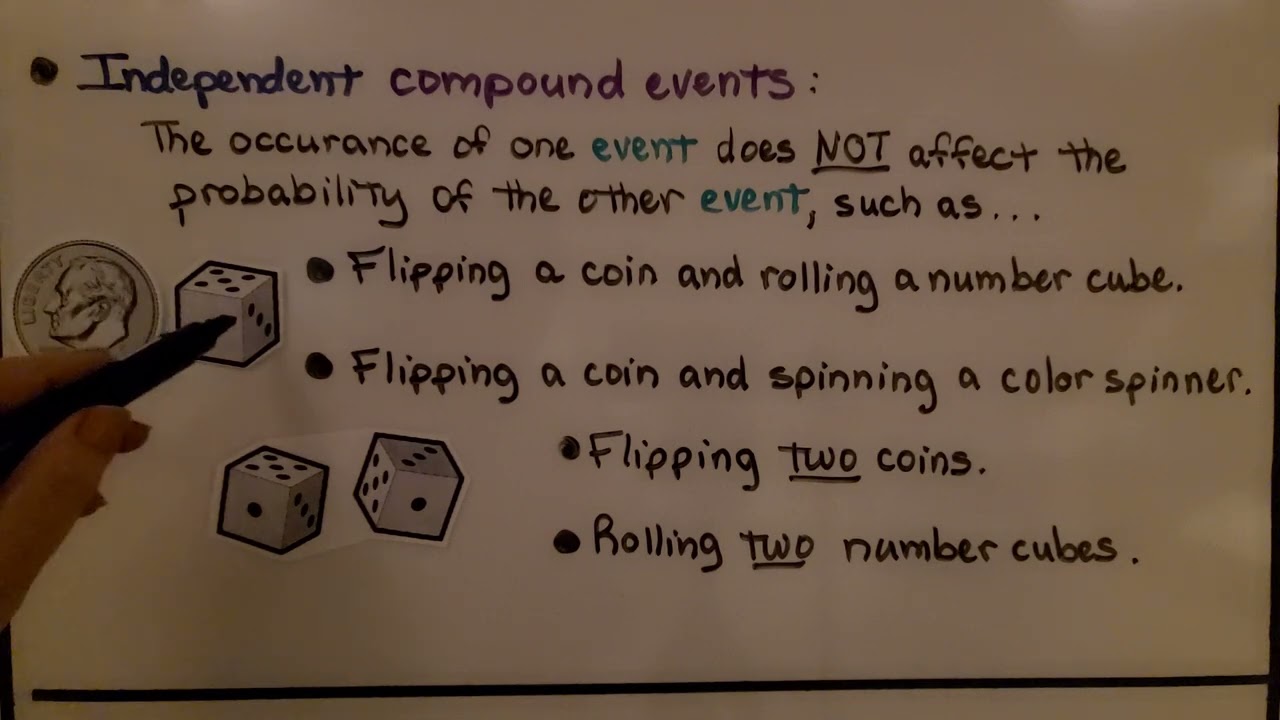 • Independent compound events:
The occurance of one event does NOT affect the
probability of the other event, such as...
LIBERTY
• Flipping a coin and rolling a number cube.
• Flipping a coin and spinning a color spinner.
• Flipping two coins.
• Rolling two number cubes.